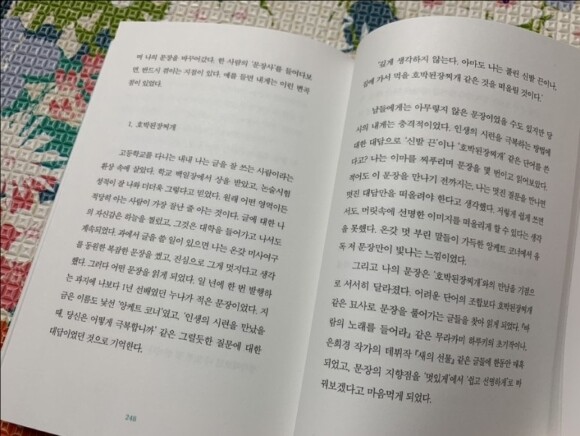 며 나의 문장을 바꾸어갔다. 한 사람의 '문장사'를 들여다보
면, 반드시 꺾이는 지점이 있다. 예를 들면 내게는 이런 변곡
점이 있었다.
1. 호박된장찌개
고등학교를 다니는 내내 나는 글을 잘 쓰는 사람이라는
환상 속에 살았다. 학교 백일장에서 상을 받았고, 논술시험
성적이 잘 나와 더더욱 그렇다고 믿었다. 원래 어떤 영역이든
적당히 아는 사람이 가장 잘난 줄 아는 것이다. 글에 대한 나
의 자신감은 하늘을 찔렀고, 그것은 대학을 들어가고 나서도
계속되었다. 과에서 글을 쓸 일이 있으면 나는 온갖 미사여구
를 동원한 복잡한 문장을 썼고, 진심으로 그게 멋지다고 생각
했다. 그러다 어떤 문장을 읽게 되었다. 일 년에 한 번 발행하
는 과지에 나보다 1년 선배였던 누나가 적은 문장이었다. 지
금은 이름도 낯선 '앙케트 코너'였고, '인생의 시련을 만났을
때, 당신은 어떻게 극복합니까' 같은 그럴듯한 질문에 대한
대답이었던 것으로 기억한다.
248
'깊게 생각하지 않는다. 아마도 나는 풀린 신발 끈이나,
집에 가서 먹을 호박된장찌개 같은 것을 떠올릴 것이다.'
남들에게는 아무렇지 않은 문장이었을 수도 있지만 당
시의 내게는 충격적이었다. 인생의 시련을 극복하는 방법에
대한 대답으로 '신발 끈'이나 '호박된장찌개' 같은 단어를 쓴
다고? 나는 이마를 찌푸리며 문장을 몇 번이고 읽어보았다.
적어도 이 문장을 만나기 전까지는, 나는 멋진 질문을 만나면
멋진 대답만을 떠올려야 한다고 생각했다. 저렇게 쉽게 쓰면
서도 머릿속에 선명한 이미지를 떠올리게 할 수 있다는 생각
을 못했다. 온갖 멋 부린 말들이 가득한 앙케트 코너에서 유
독 저 문장만이 빛나는 느낌이었다.
그리고 나의 문장은 '호박된장찌개'와의 만남을 기점으
로 서서히 달라졌다. 어려운 단어의 조합보다 호박된장찌개
같은 묘사로 문장을 풀어가는 글들을 찾아 읽게 되었다. 『바
람의 노래를 들어라』 같은 무라카미 하루키의 초기작이나,
은희경 작가의 데뷔작 『새의 선물』 같은 글들에 한동안 매혹
되었고, 문장의 지향점을 '멋있게'에서 '쉽고 선명하게'로 바
꿔보겠다고 마음먹게 되었다.